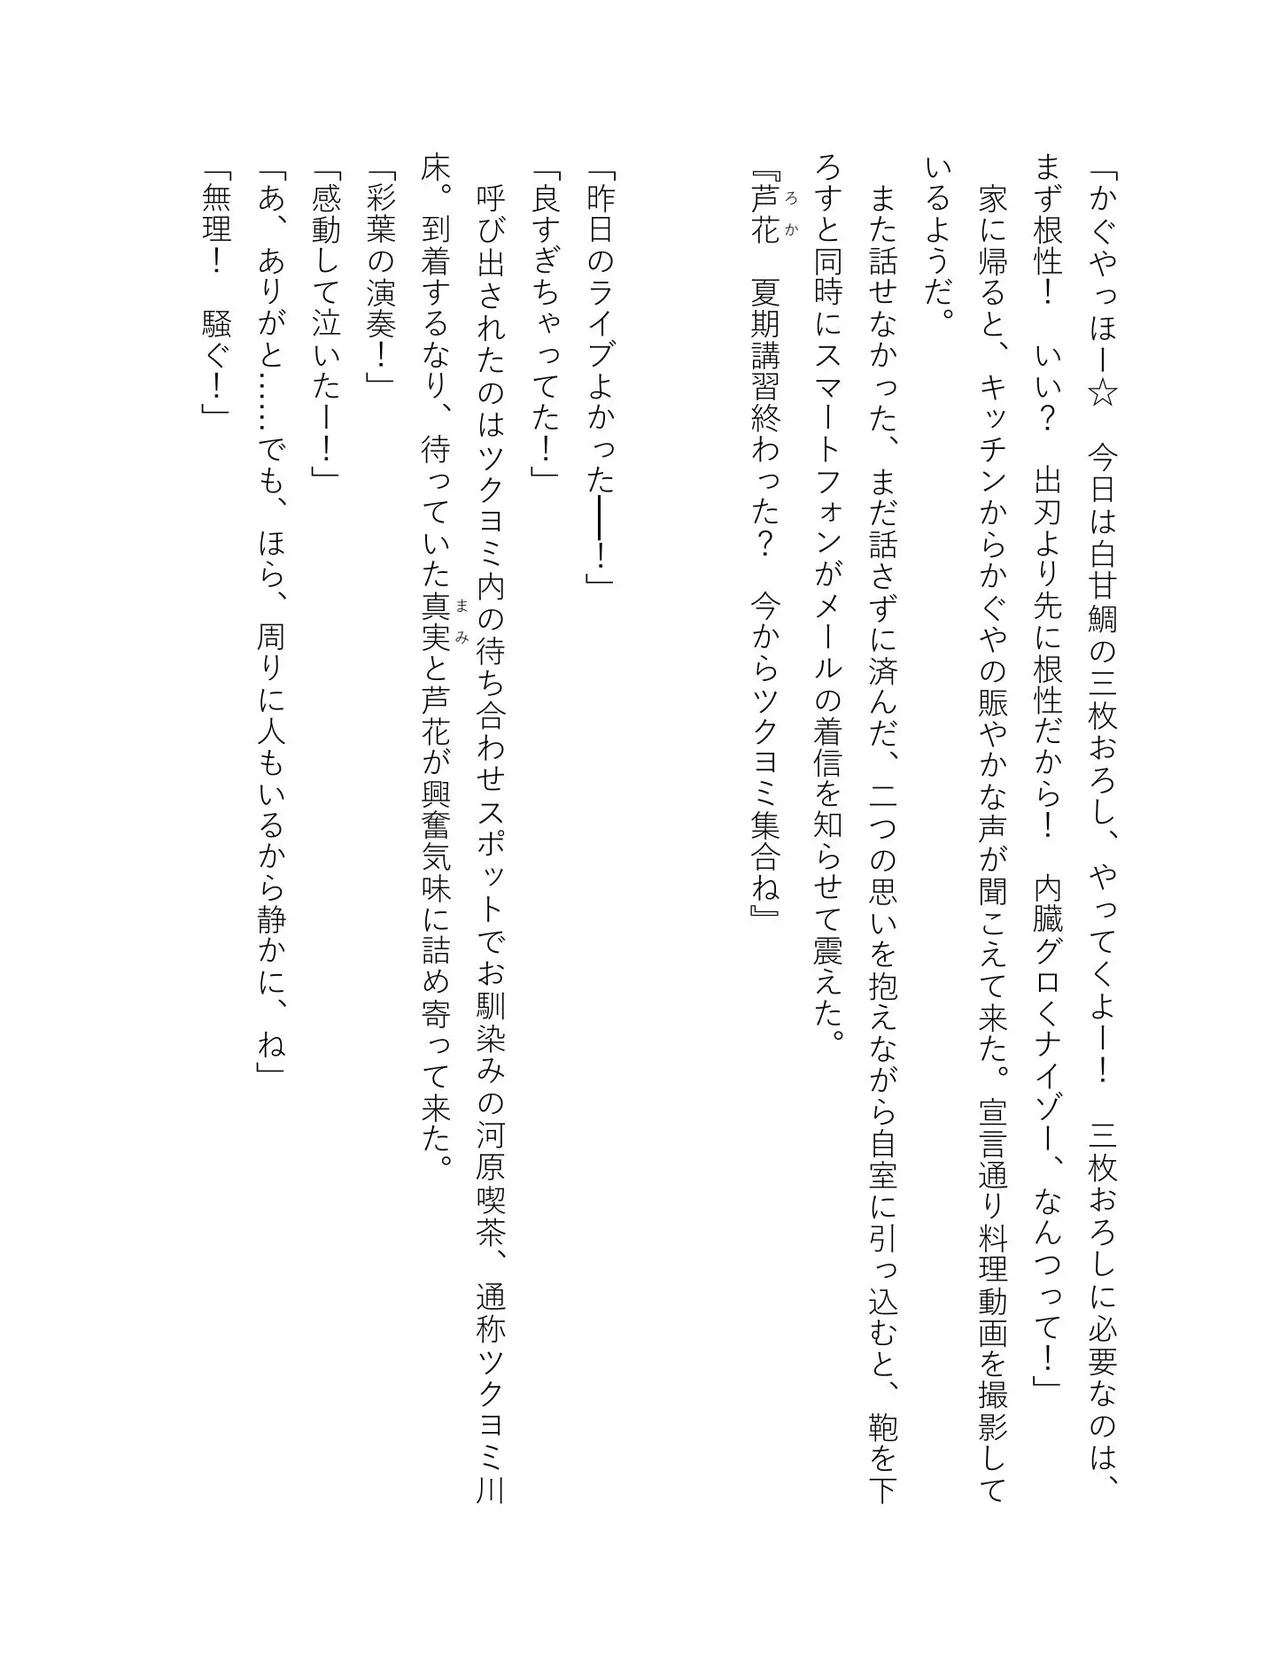 「かぐやっほー☆　今日は白甘鯛の三枚おろし、やってくよー！　三枚おろしに必要なのは、
まず根性！　いい？　出刃より先に根性だから！　内臓グロくナイゾー、なんつって！」
　家に帰ると、キッチンからかぐやの賑やかな声が聞こえて来た。宣言通り料理動画を撮影して
いるようだ。
　また話せなかった、まだ話さずに済んだ、二つの思いを抱えながら自室に引っ込むと、鞄を下
ろすと同時にスマートフォンがメールの着信を知らせて震えた。
ろか
『芦花　夏期講習終わった？　今からツクヨミ集合ね』
「昨日のライブよかった――！」
「良すぎちゃってた！」
　呼び出されたのはツクヨミ内の待ち合わせスポットでお馴染みの河原喫茶、通称ツクヨミ川
まみ
床。到着するなり、待っていた真実と芦花が興奮気味に詰め寄って来た。
「彩葉の演奏！」
「感動して泣いたー！」
「あ、ありがと……でも、ほら、周りに人もいるから静かに、ね」
「無理！　騒ぐ！」